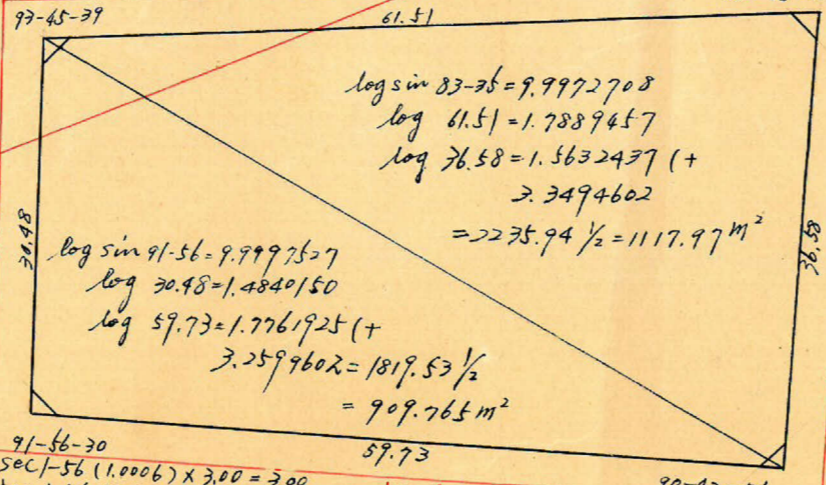 93-45-39
61.51
log sin 83-35=9.9972708
log 61.51=1.7889457
log 36.58=1.5632437 (+
3.3494602
=2235.94 1/2=1117.97 m²
30.48
36.58
log sin 91-56=9.9997527
log 30.48=1.4840150
log 59.73=1.7761925 (+
3.2599602=1819.53 1/2
= 909.765 m²
91-56-30
59.73
sec 1-56 (1.0006) x 3.00 = 3.00